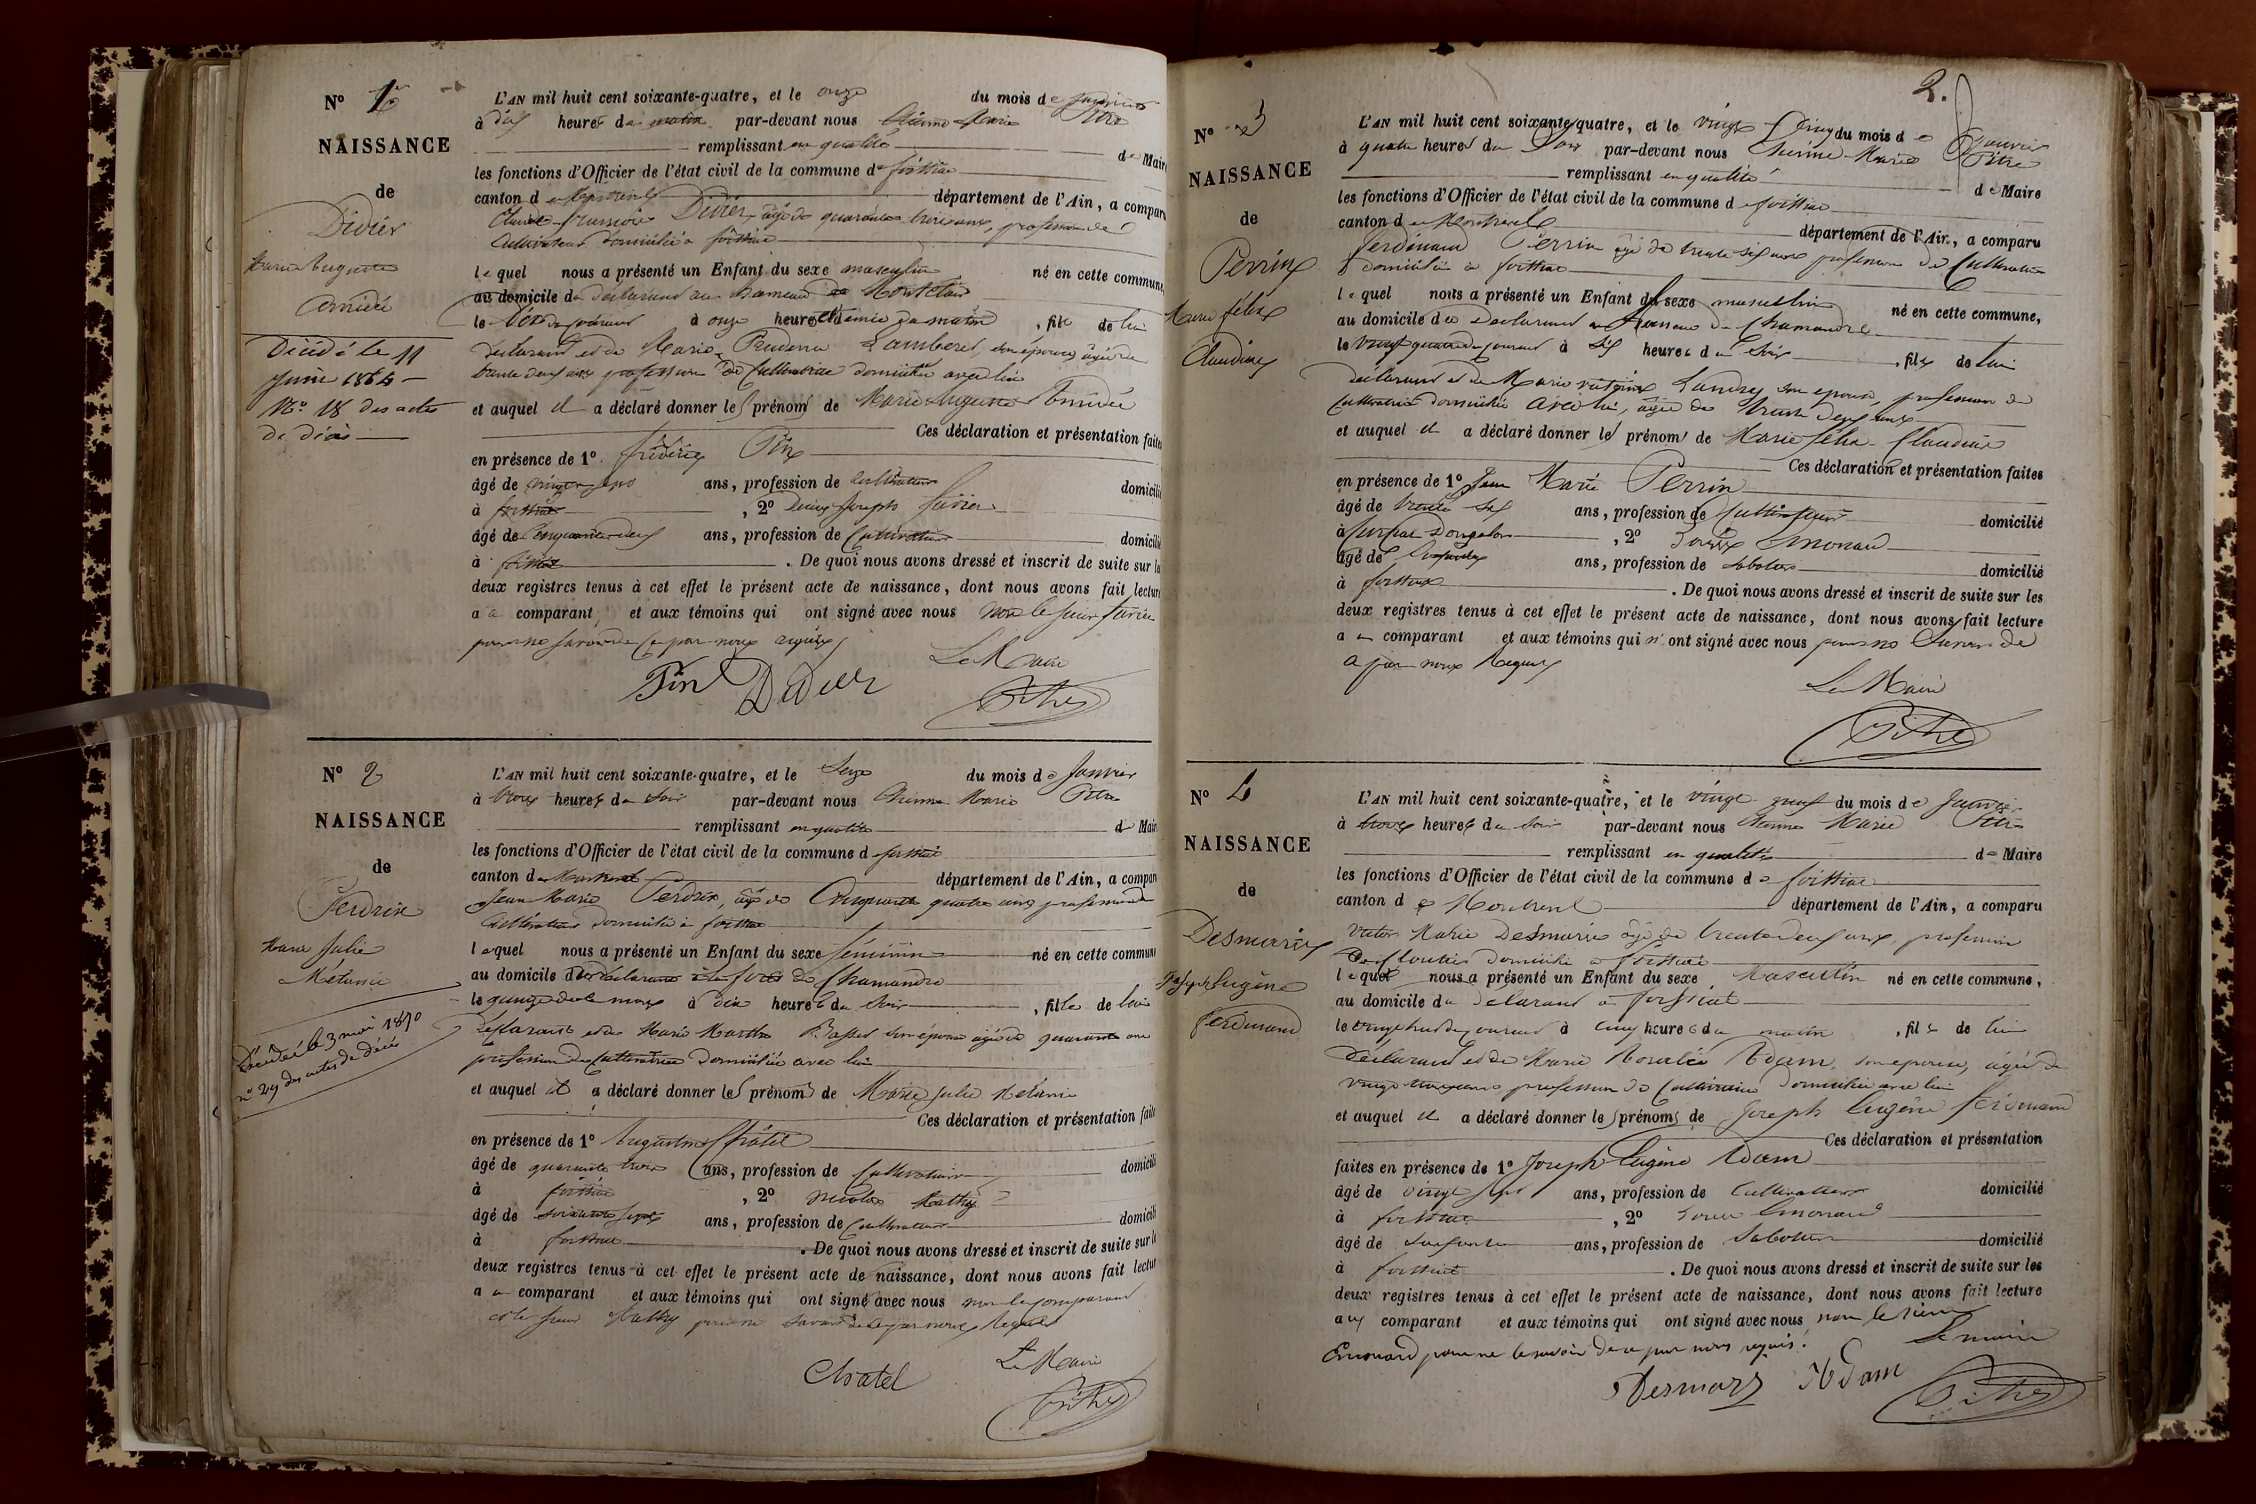 N° 1er
NAISSANCE
de
Didier
Marie Auguste
Amédée
Décédé le 11
juin 1864
N° 18 des actes
de décès
L'AN mil huit cent soixante-quatre, et le onze du mois de janvier
à dix heures du matin par-devant nous Étienne Marie Pitre
remplissant en qualité de Maire
les fonctions d'Officier de l'état civil de la commune de foissiat
canton de Montrevel département de l'Ain, a comparu
Claude françois Didier, âgé de quarante trois ans, profession de
Cultivateur domicilié à foissiat
lequel nous a présenté un Enfant du sexe masculin né en cette commune,
au domicile du déclarant au hameau de
le dix du courant à onze heures du matin, fils de lui
déclarant et de Marie Prudence Lamberet, son épouse âgée de
trente deux ans profession de Cultivatrice domiciliée avec lui
et auquel il a déclaré donner les prénoms de Marie Auguste Amédée
Ces déclaration et présentation faites
en présence de 1° frédéric Pin
âgé de vingt sept ans, profession de Cultivateur domicilié
à foissiat, 2° Joseph
âgé de Cinquante deux ans, profession de Cultivateur domicilié
à foissiat. De quoi nous avons dressé et inscrit de suite sur les
deux registres tenus à cet effet le présent acte de naissance, dont nous avons fait lecture
au comparant et aux témoins qui ont signé avec nous non le sieur
pour ne savoir de ce par nous requis
Le Maire
Pin Didier Pitre
N° 2
NAISSANCE
de
Perdrix
Marie Julie
Mélanie
Décédée le 3 mai 1870
n° 29 des actes de décès
L'AN mil huit cent soixante-quatre, et le Seize du mois de Janvier
à trois heures du soir par-devant nous Étienne Marie Pitre
remplissant en qualité de Maire
les fonctions d'Officier de l'état civil de la commune de foissiat
canton de Montrevel département de l'Ain, a comparu
Jean Marie Perdrix, âgé de Cinquante quatre ans profession de
Cultivateur domicilié à foissiat
lequel nous a présenté un Enfant du sexe féminin né en cette commune
au domicile du déclarant de Chamandre
le quinze de ce mois à dix heures du Soir, fille de lui
déclarant et de Marie Marthe son épouse âgée de quarante ans
profession de Cultivatrice domiciliée avec lui
et auquel il a déclaré donner les prénoms de Marie Julie Mélanie
Ces déclaration et présentation faites
en présence de 1° Augustin Châtel
âgé de quarante trois ans, profession de Cultivateur domicilié
à foissiat, 2° Nicolas Mathy
âgé de soixante sept ans, profession de Cultivateur domicilié
à foissiat. De quoi nous avons dressé et inscrit de suite sur les
deux registres tenus à cet effet le présent acte de naissance, dont nous avons fait lecture
au comparant et aux témoins qui ont signé avec nous non le comparant
et le sieur Mathy pour ne savoir de ce par nous requis
Le Maire
Chatel Pitre
2.
N° 3
NAISSANCE
de
Perrin
Marie félix
Claudius
L'AN mil huit cent soixante-quatre, et le vingt Cinq du mois de Janvier
à quatre heures du Soir par-devant nous Étienne Marie Pitre
remplissant en qualité de Maire
les fonctions d'Officier de l'état civil de la commune de foissiat
canton de Montrevel département de l'Ain, a comparu
ferdinand Perrin âgé de trente six ans profession de Cultivateur
domicilié à foissiat
lequel nous a présenté un Enfant du sexe masculin né en cette commune,
au domicile du Déclarant au hameau de Chamandre
le vingt quatre du courant à Six heures du Soir, fils de lui
déclarant et de Marie victoire Landrey son épouse, profession de
Cultivatrice domiciliée avec lui, âgée de trente deux ans
et auquel il a déclaré donner les prénoms de Marie félix Claudius
Ces déclaration et présentation faites
en présence de 1° Jean Marie Perrin
âgé de trente six ans, profession de Cultivateur domicilié
à, 2° Louis Emonard
âgé de ans, profession de Sabotier domicilié
à foissiat. De quoi nous avons dressé et inscrit de suite sur les
deux registres tenus à cet effet le présent acte de naissance, dont nous avons fait lecture
au comparant et aux témoins qui n'ont signé avec nous pour ne Savoir de
ce par nous Requis
Le Maire
Pitre
N° 4
NAISSANCE
de
Desmaris
Joseph Eugène
ferdinand
L'AN mil huit cent soixante-quatre, et le vingt neuf du mois de Janvier
à trois heures du soir par-devant nous Étienne Marie Pitre
remplissant en qualité de Maire
les fonctions d'Officier de l'état civil de la commune de foissiat
canton de Montrevel département de l'Ain, a comparu
Victor Marie Desmaris âgé de trente deux ans, profession
de domicilié à foissiat
lequel nous a présenté un Enfant du sexe Masculin né en cette commune,
au domicile du déclarant à foissiat
le vingt huit du courant à cinq heures du matin, fils de lui
Déclarant et de Marie Rosalie Adam, son épouse, âgée de
vingt trois ans profession de Cultivatrice domiciliée avec lui
et auquel il a déclaré donner les prénoms de Joseph Eugène ferdinand
Ces déclaration et présentation
faites en présence de 1° Joseph Eugène Adam
âgé de vingt sept ans, profession de Cultivateur domicilié
à foissiat, 2° Louis Emonard
âgé de soixante ans, profession de Sabotier domicilié
à foissiat. De quoi nous avons dressé et inscrit de suite sur les
deux registres tenus à cet effet le présent acte de naissance, dont nous avons fait lecture
aux comparant et aux témoins qui ont signé avec nous non le sieur
Emonard pour ne le savoir de ce par nous requis.
Le maire
Desmaris Adam Pitre